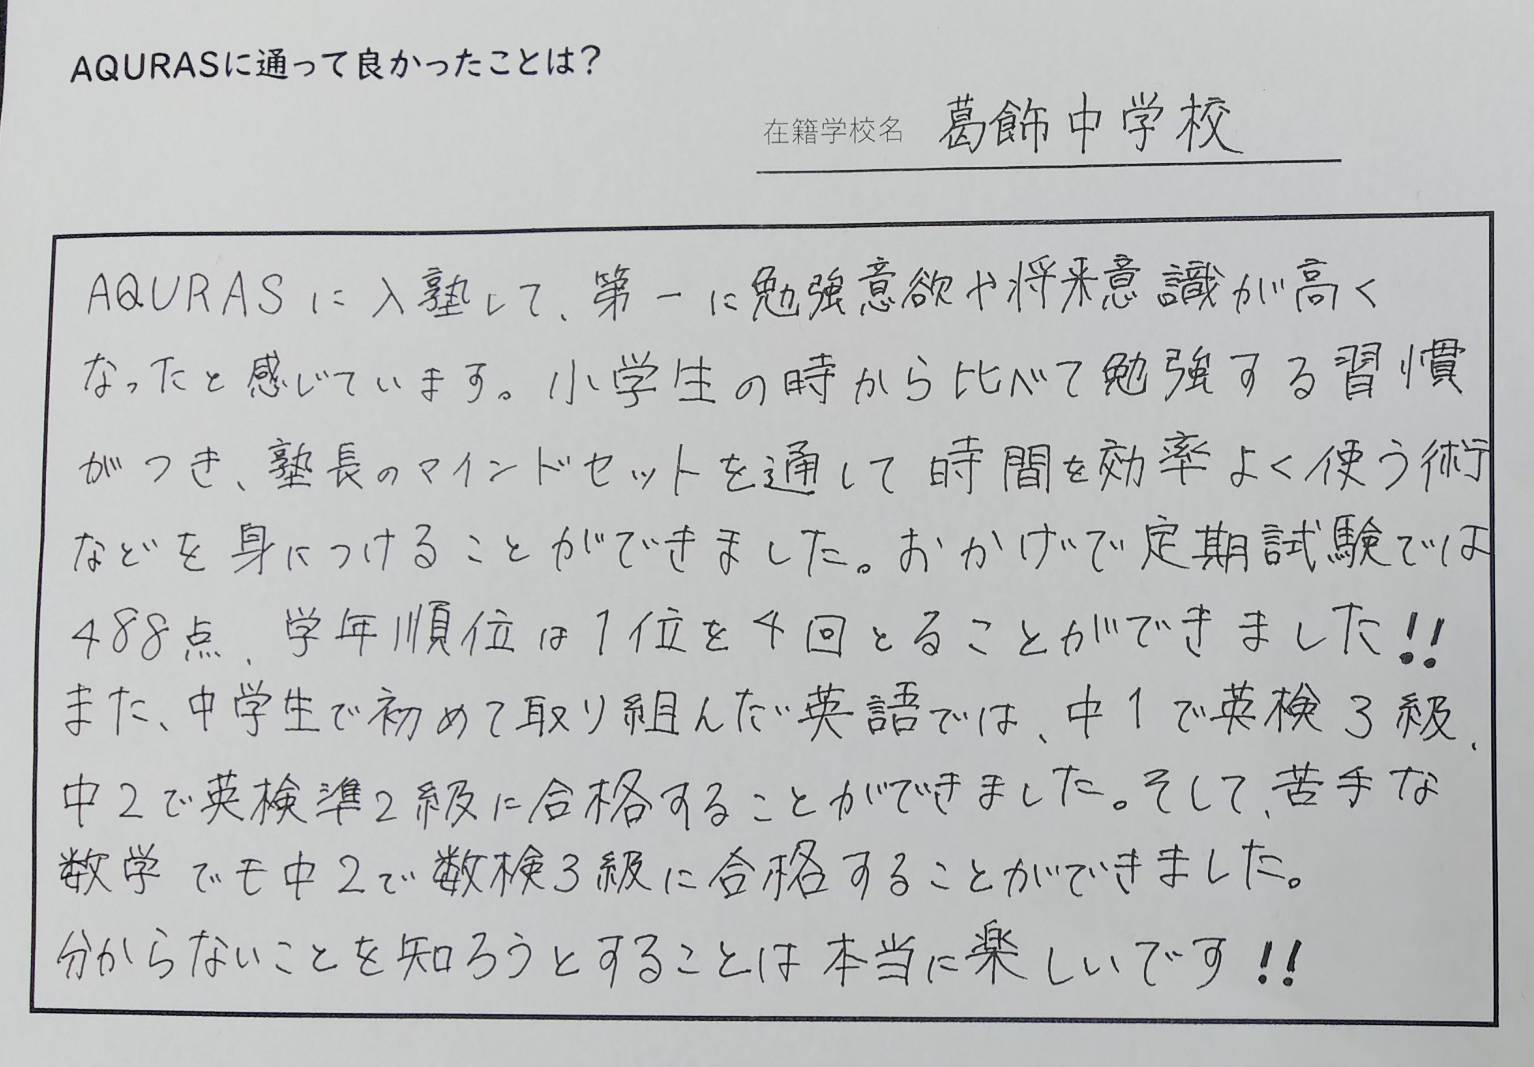 AQURASに通って良かったことは？
在籍学校名 葛飾中学校
AQURASに入塾して、第一に勉強意欲や将来意識が高く
なったと感じています。小学生の時から比べて勉強する習慣
がつき、塾長のマインドセットを通して時間を効率よく使う術
などを身につけることができました。おかげで定期試験では
488点、学年順位は1位を4回とることができました!!
また、中学生で初めて取り組んだ英語では、中1で英検3級、
中2で英検準2級に合格することができました。そして、苦手な
数学でも中2で数検3級に合格することができました。
分からないことを知ろうとすることは本当に楽しいです!!